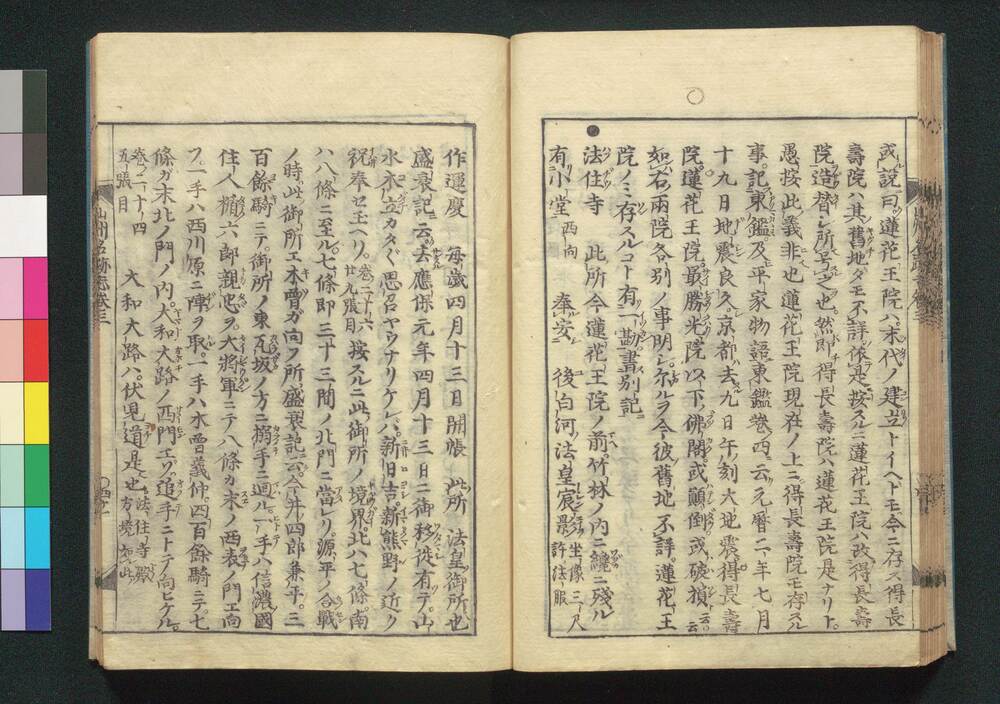 或説ニ曰蓮花王院ハ末代ノ建立トイヘトモ今ニ存ス得長
壽院ハ其舊地ダモ不詳依是按スルニ蓮花王院ハ改得長壽
院造替シ所号之也然即得長壽院ハ蓮花王院是ナリト
愚按此義非也蓮花王院現在ノ上ニ得長壽院モ存スル
事記東鑑及平家物語東鑑卷ノ四ニ云元暦二年七月
十九日地震良久京都去九日午刻大地震得長壽
院蓮花王院最勝光院以下佛閣或顛倒或破損云云
如右兩院各別ノ事明シ尓ルヲ今彼舊地不詳蓮花王
院ノミ存スルコト有一勘書別記
●法住寺 此所今蓮花王院ノ前竹林ノ内ニ纔ニ殘ル
有小堂 西向 奉安 後白河法皇宸影 坐像三尺許法服
作運慶 毎歳四月十三日開帳 此所法皇御所也
盛衰記云去應保元年四月十三日ニ御移徙有テ山
水木立カタ〲思召ヤウナリケレバ新日吉新熊野ノ近ク
祝奉セ玉ヘリ 卷二十六 廿九張目 按スルニ此御所ノ境界北ハ七條南
ハ八條ニ至ル七條即三十三間ノ北門ニ當レリ源平ノ合戰
ノ時此御所エ木曽ガ向フ所盛衰記云今井四郎兼平三
百餘騎ニテ御所ノ東瓦坂ノ方ニ搦手ニ廻ル一手ハ信濃國
住人楯六郎親忠ヲ大將軍ニテ八條カ末ノ西表ノ門エ向
フ一手ハ西川原ニ陣ヲ取一手ハ木曽義仲四百餘騎ニテ七
條ガ末北ノ門ノ内大和大路ノ西門エゾ追手ニトテ向ヒケル
卷三十四 五張目 大和大路ハ伏見道是也 法住寺殿 方境如此
山州名跡志卷三